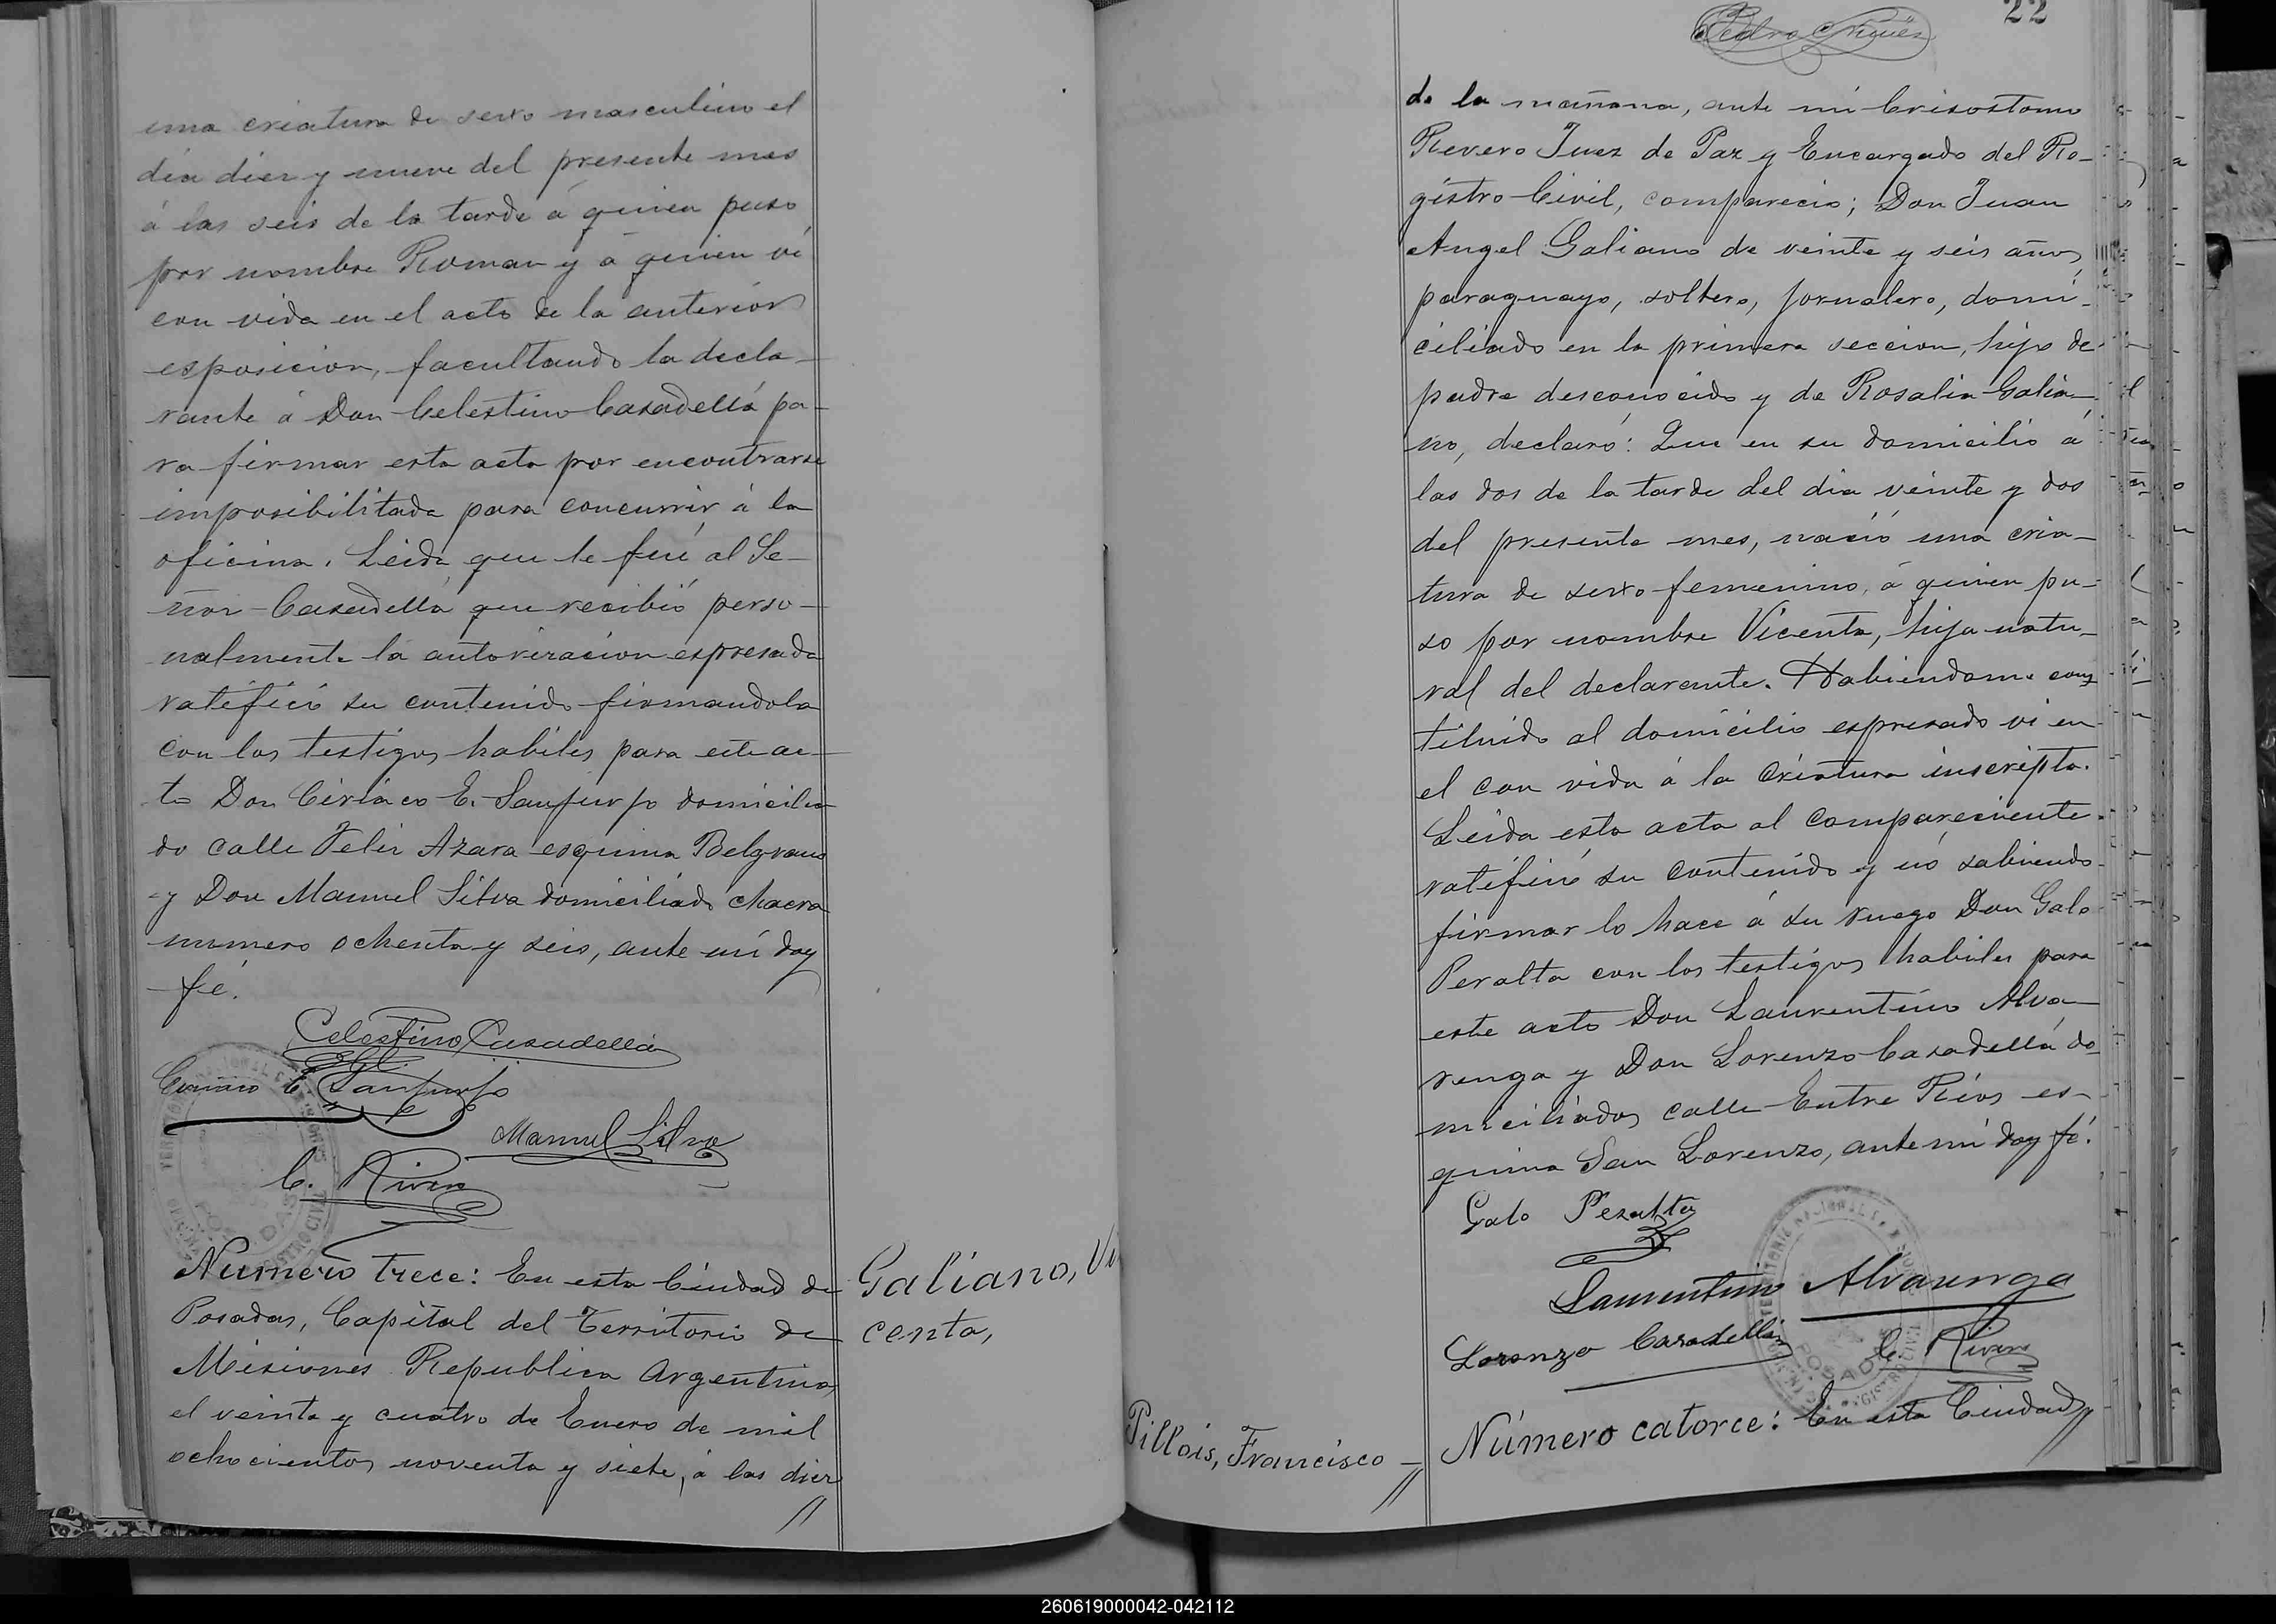 una criatura de sexo masculino el
dia diez y nueve del presente mes
á las seis de la tarde á quien puso
por nombre Roman y á quien ví
con vida en el acto de la anterior
esposicion, facultando la decla-
rante á Don Celestino Casadellá pa-
ra firmar esta acta por encontrarse
imposibilitada para concurrir á la
oficina. Leida que le fué al Se-
ñor Casadellá que recibió perso-
nalmente la autorizacion espresada
ratificó su contenido firmandola
con los testigos habiles para este ac-
to Don Ciriaco E. Sanjurjo domicilia-
do calle Felix Azara esquina Belgrano
y Don Manuel Silva domiciliado chacra
numero ochenta y seis, ante mí doy
fé.
Celestino Casadellá
Ciriaco E. Sanjurjo
Manuel Silva
C. Rivero
POSADAS
Numero trece: En esta Ciudad de
Posadas, Capital del Territorio de
Misiones Republica Argentina,
el veinte y cuatro de Enero de mil
ochocientos noventa y siete, á las diez
Galiano, Vi
centa,
22
Pedro
de la mañana, ante mí Crisostomo
Revero Juez de Paz y Encargado del Re-
gistro Civil, comparecio; Don Juan
Angel Galiano de veinte y seis años,
paraguayo, soltero, jornalero, domi-
ciliado en la primera seccion, hijo de
padre desconocido y de Rosalia Galia-
no, declaró: Que en su domicilio á
las dos de la tarde del dia veinte y dos
del presente mes, nació una cria-
tura de sexo femenino, á quien pu-
so por nombre Vicenta, hija natu-
ral del declarante. Habiendome cons
tituido al domicilio espresado vi en
el con vida á la criatura inscripta.
Leida esta acta al compareciente
ratificó su contenido y nó sabiendo
firmar lo hace á su ruego Don Galo
Peralta con los testigos habiles para
este acto Don Laurentino Alva-
renga y Don Lorenzo Casadellá do-
miciliados calle Entre Rios es-
quina San Lorenzo, ante mí doy fé.
Galo Peralta
Laurentino Alvarenga
Lorenzo Casadellá
C. Rivero
POSADAS
Pillois, Francisco
Número catorce: En esta Ciudad
260619000042-042112